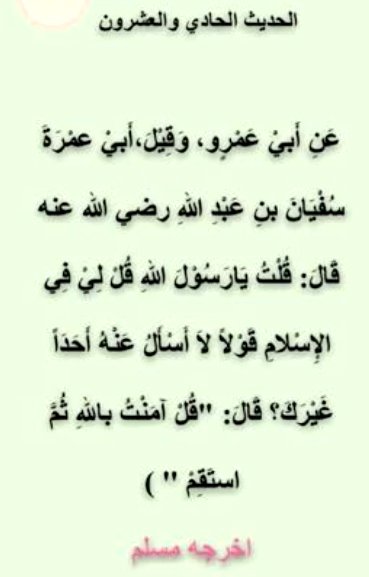 الحديث الحادي والعشرون
عَنِ أَبيْ عَمْرٍو، وَقِيْلَ،أَبيْ عمْرَةَ
سُفْيَانَ بنِ عَبْدِ اللهِ رضي الله عنه
قَالَ: قُلْتُ يَارَسُوْلَ اللهِ قُلْ لِيْ فِي
الإِسْلامِ قَوْلاً لاَ أَسْأَلُ عَنْهُ أَحَدَاً
غَيْرَكَ؟ قَالَ: "قُلْ آمَنْتُ باللهِ ثُمَّ
استَقِمْ " )
اخرجه مسلم